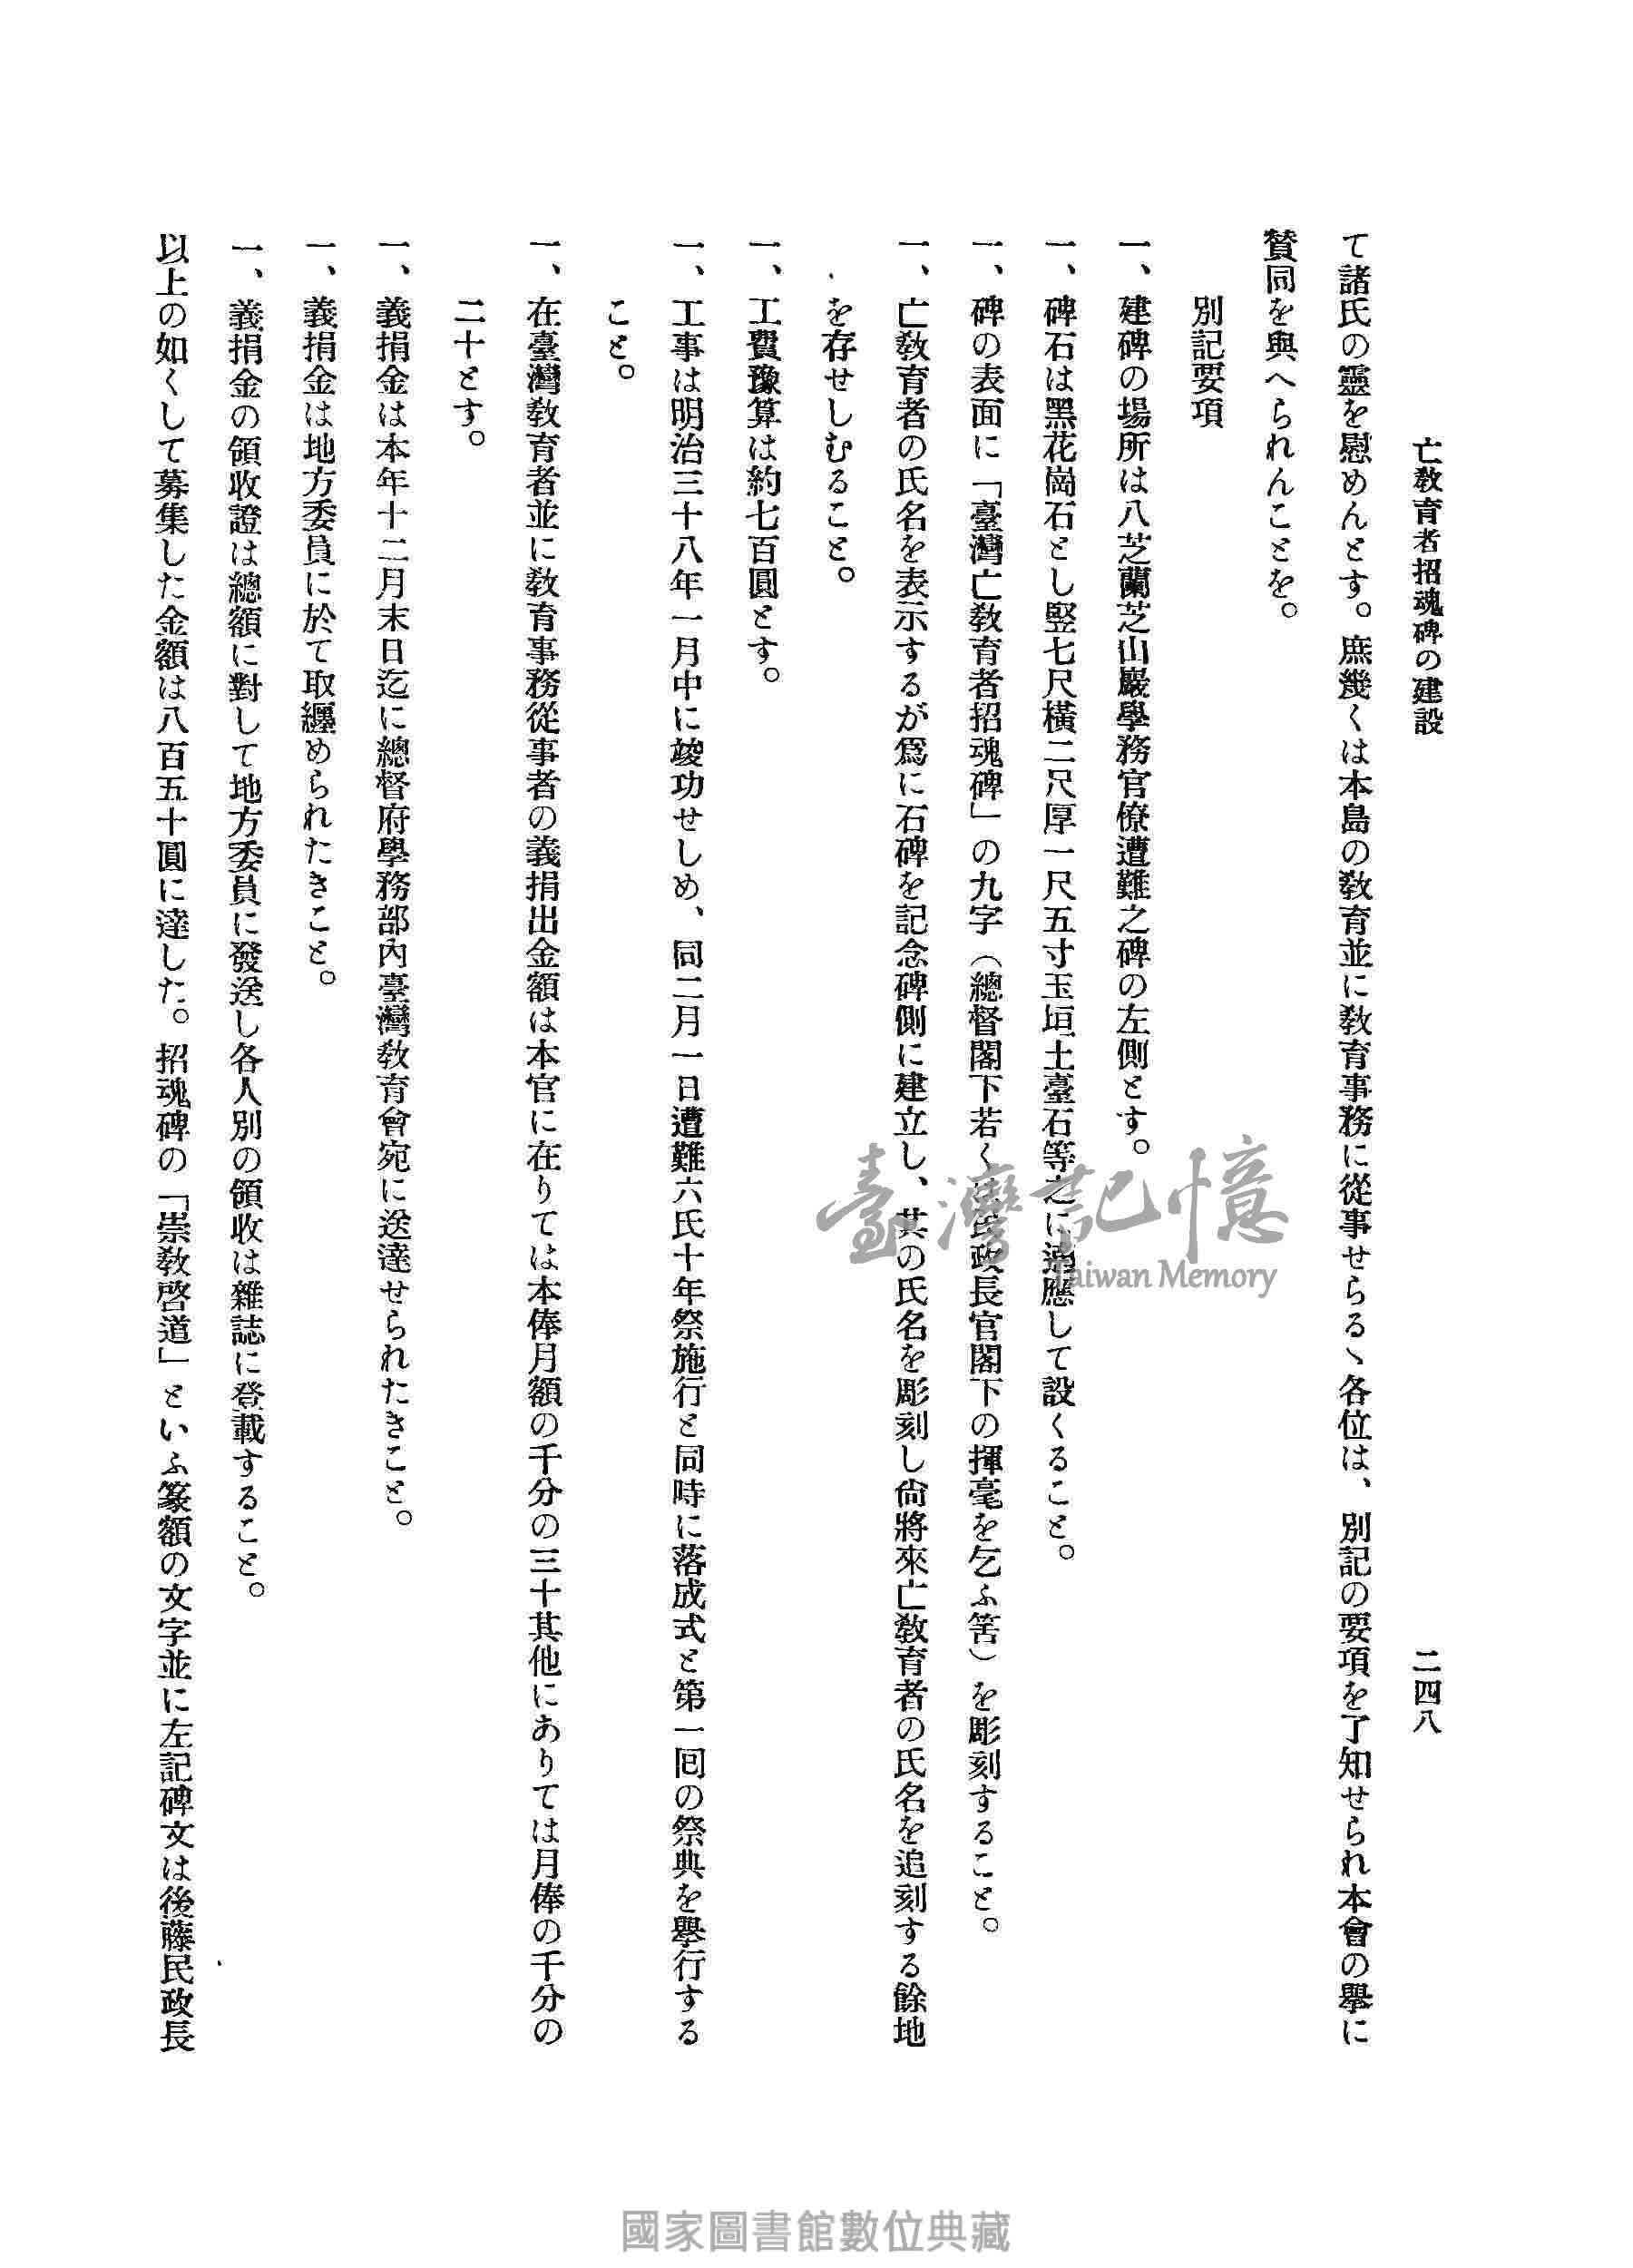 亡敎育者招魂碑の建設
二四八
て諸氏の靈を慰めんとす。庶幾くは本島の敎育並に敎育事務に從事せらるヽ各位は、別記の要項を了知せられ本會の擧に
贊同を與へられんことを。
別記要項
一、建碑の場所は八芝蘭芝山巖學務官僚遭難之碑の左側とす。
一、碑石は黑花崗石とし竪七尺橫二尺厚一尺五寸玉垣土臺石等之に適應して設くること。
一、碑の表面に「臺灣亡敎育者招魂碑」の九字（總督閣下若くは民政長官閣下の揮毫を乞ふ筈）を彫刻すること。
一、亡敎育者の氏名を表示するが爲に石碑を記念碑側に建立し、其の氏名を彫刻し尙將來亡敎育者の氏名を追刻する餘地
を存せしむること。
一、工費豫算は約七百圓とす。
一、工事は明治三十八年一月中に竣功せしめ、同二月一日遭難六氏十年祭施行と同時に落成式と第一回の祭典を擧行する
こと。
一、在臺灣敎育者並に敎育事務從事者の義捐出金額は本官に在りては本俸月額の千分の三十其他にありては月俸の千分の
二十とす。
一、義捐金は本年十二月末日迄に總督府學務部內臺灣敎育會宛に送達せられたきこと。
一、義捐金は地方委員に於て取纒められたきこと。
一、義捐金の領收證は總額に對して地方委員に發送し各人別の領收は雜誌に登載すること。
以上の如くして募集した金額は八百五十圓に達した。招魂碑の「崇敎啓道」といふ篆額の文字並に左記碑文は後藤民政長
臺灣記憶
Taiwan Memory
國家圖書館數位典藏